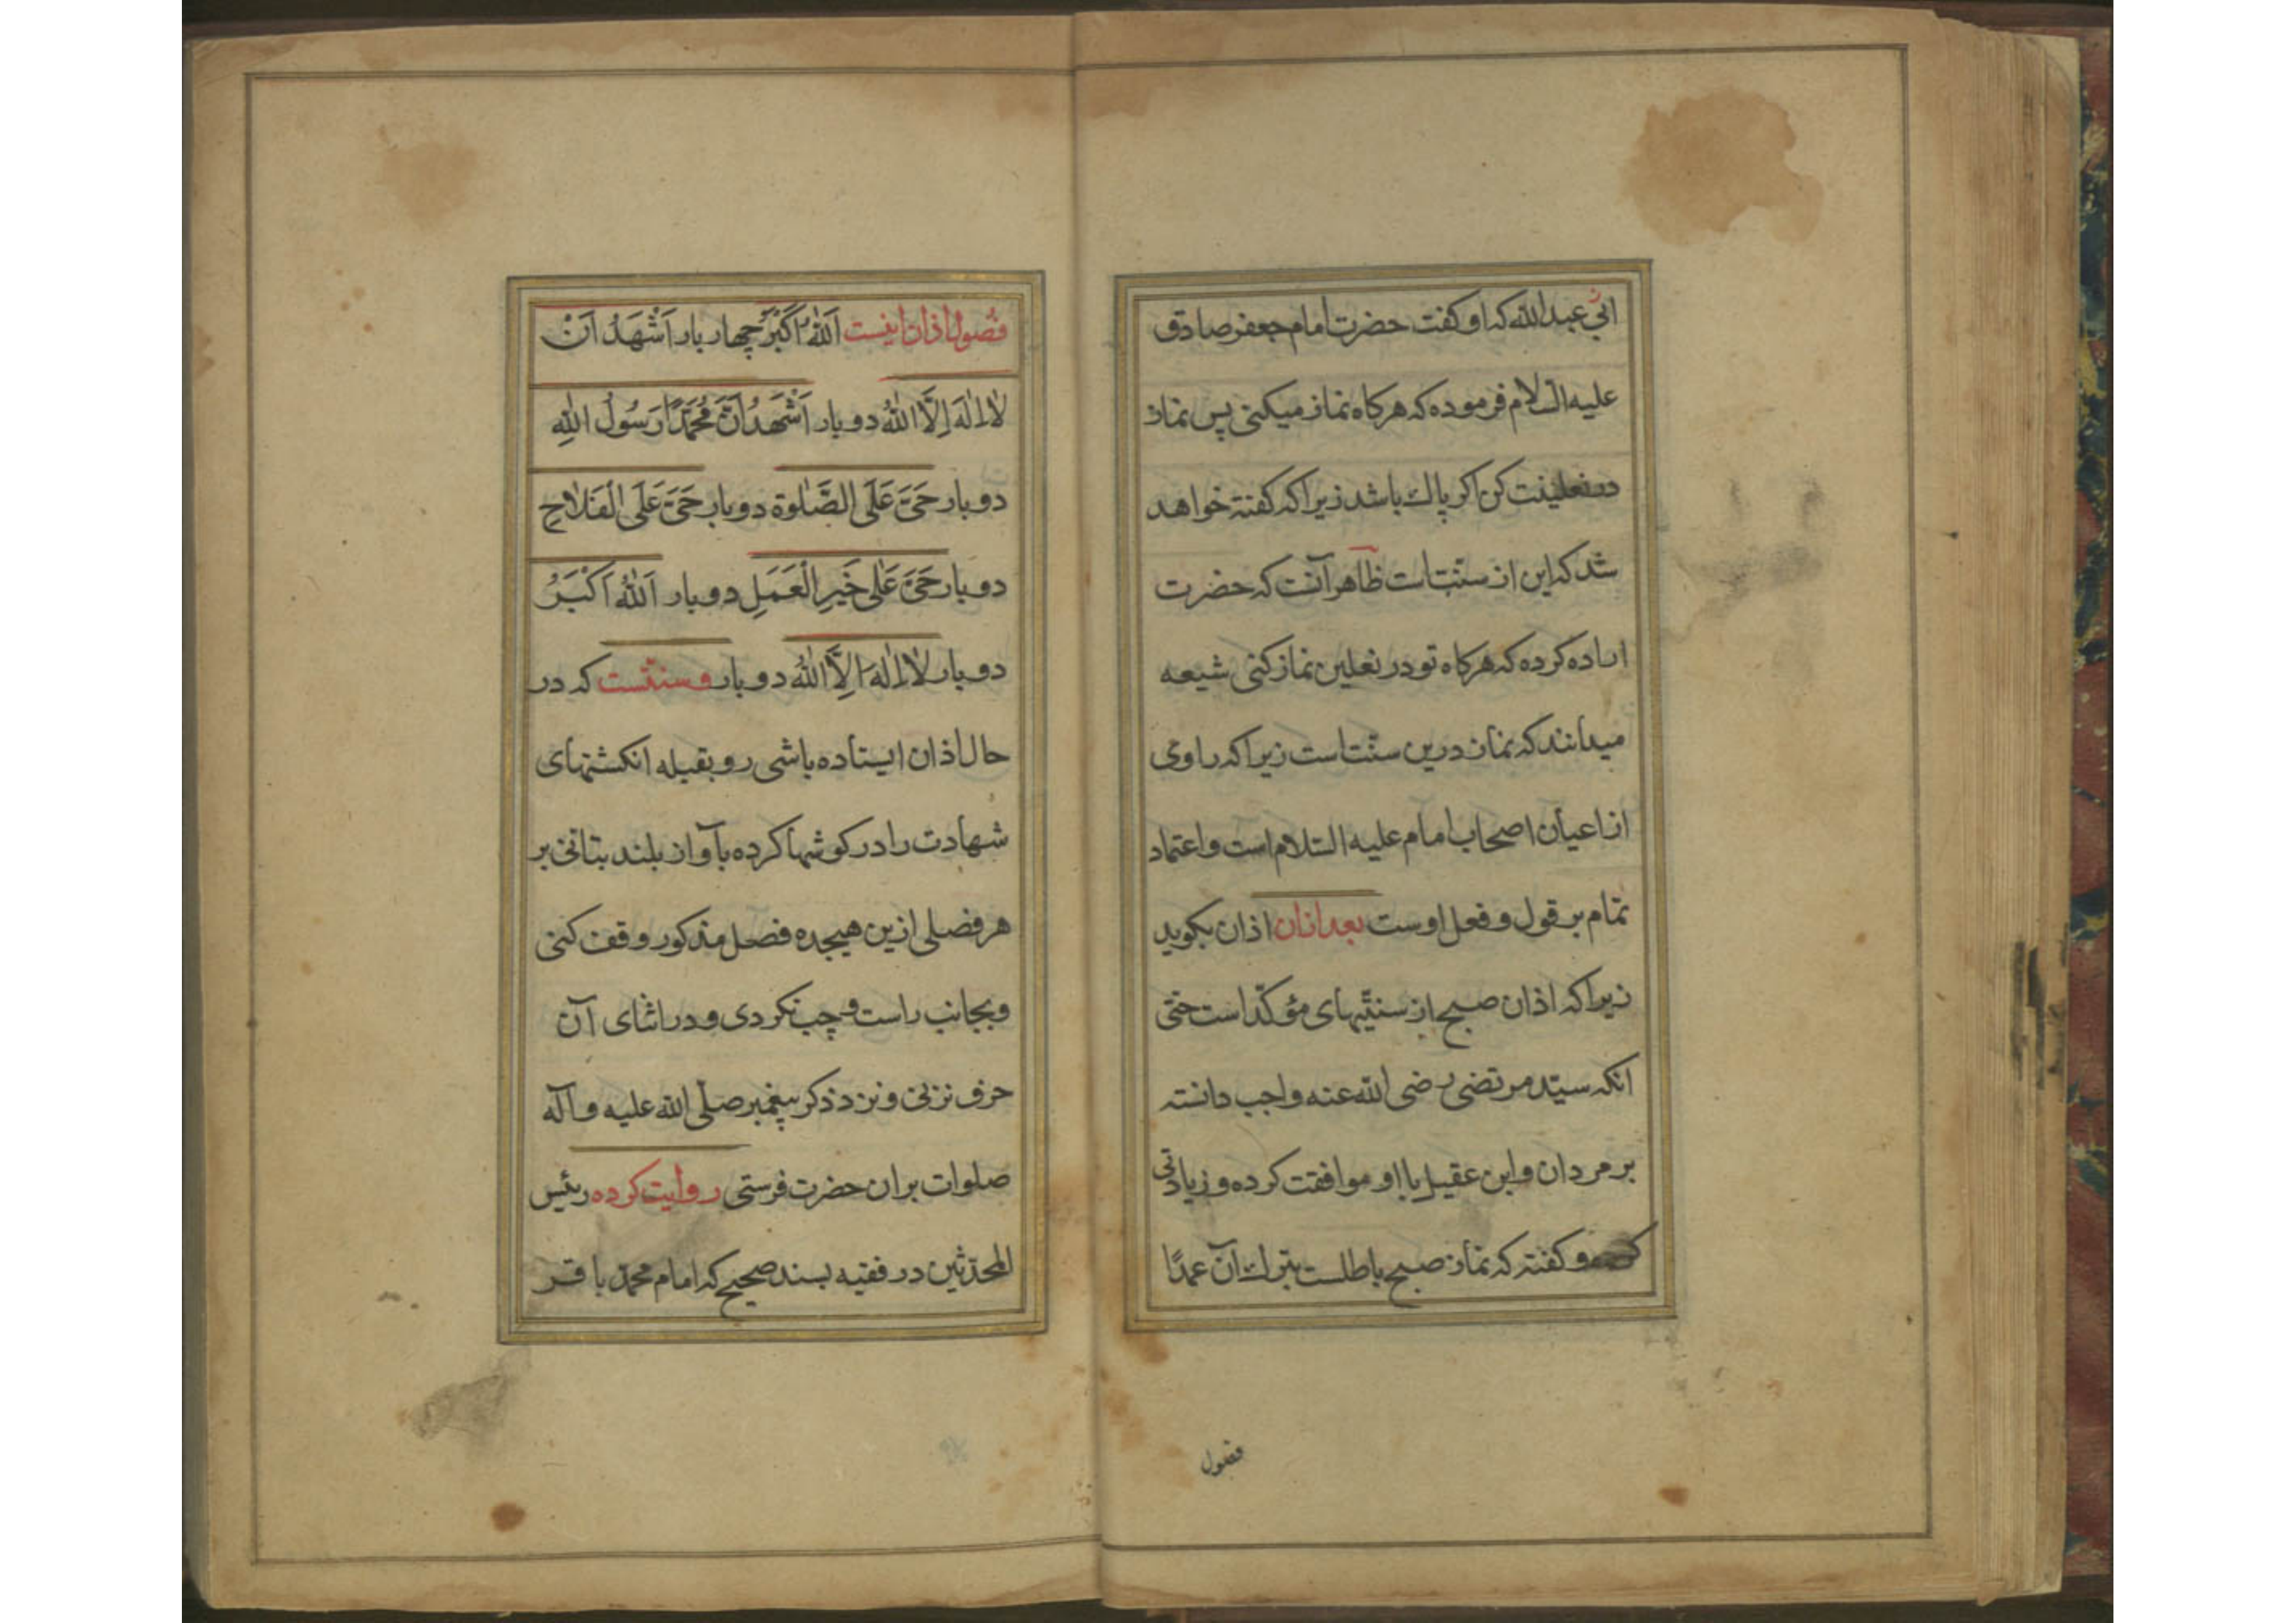 ابی عبدالله که او کفت حضرت امام جعفر صادق
علیه السلام فرموده که هرکاه نماز میکنی پس نماز
در نعلینت کن اکر پاك باشد زیرا که کفته خواهد
شد که این از سنت است ظاهر آنست که حضرت
اراده کرده که هرکاه تو در نعلین نماز کنی شیعه
میدانند که نماز درین سنت است زیرا که راوی
از اعیان اصحاب امام علیه السلام است و اعتماد
تمام بر قول و فعل اوست بعد ازان اذان بکوید
زیرا که اذان صبح از سنتیهای مؤکد است حتی
انکه سید مرتضی رضی الله عنه واجب دانسته
بر مردان و ابن عقیل باو موافقت کرده و زیادتی
و کفته که نماز صبح باطلست بترك آن عمدًا
فصول
فصول اذان اینست اَللهُ اَکْبَرُ چهار بار اَشْهَدُ اَنْ
لا اِلٰهَ اِلَّا اللهُ دو بار اَشْهَدُ اَنَّ مُحَمَّدًا رَسُولُ اللهِ
دو بار حَیَّ عَلَی الصَّلٰوةِ دو بار حَیَّ عَلَی الْفَلاٰحِ
دو بار حَیَّ عَلٰی خَیْرِ الْعَمَلِ دو بار اَللهُ اَکْبَرُ
دو بار لا اِلٰهَ اِلَّا اللهُ دو بار و سنتست که در
حال اذان ایستاده باشی رو بقبله انکشتهای
شهادت را در کوشها کرده بآواز بلند بتانی بر
هر فصلی ازین هیجده فصل مذکور وقف کنی
و بجانب راست و چپ نکردی و در اثنای آن
حرف نزنی و نزد ذکر پیغمبر صلی الله علیه و آله
صلوات بران حضرت فرستی روایت کرده رئیس
المحدثین در فقیه بسند صحیح که امام محمد باقر